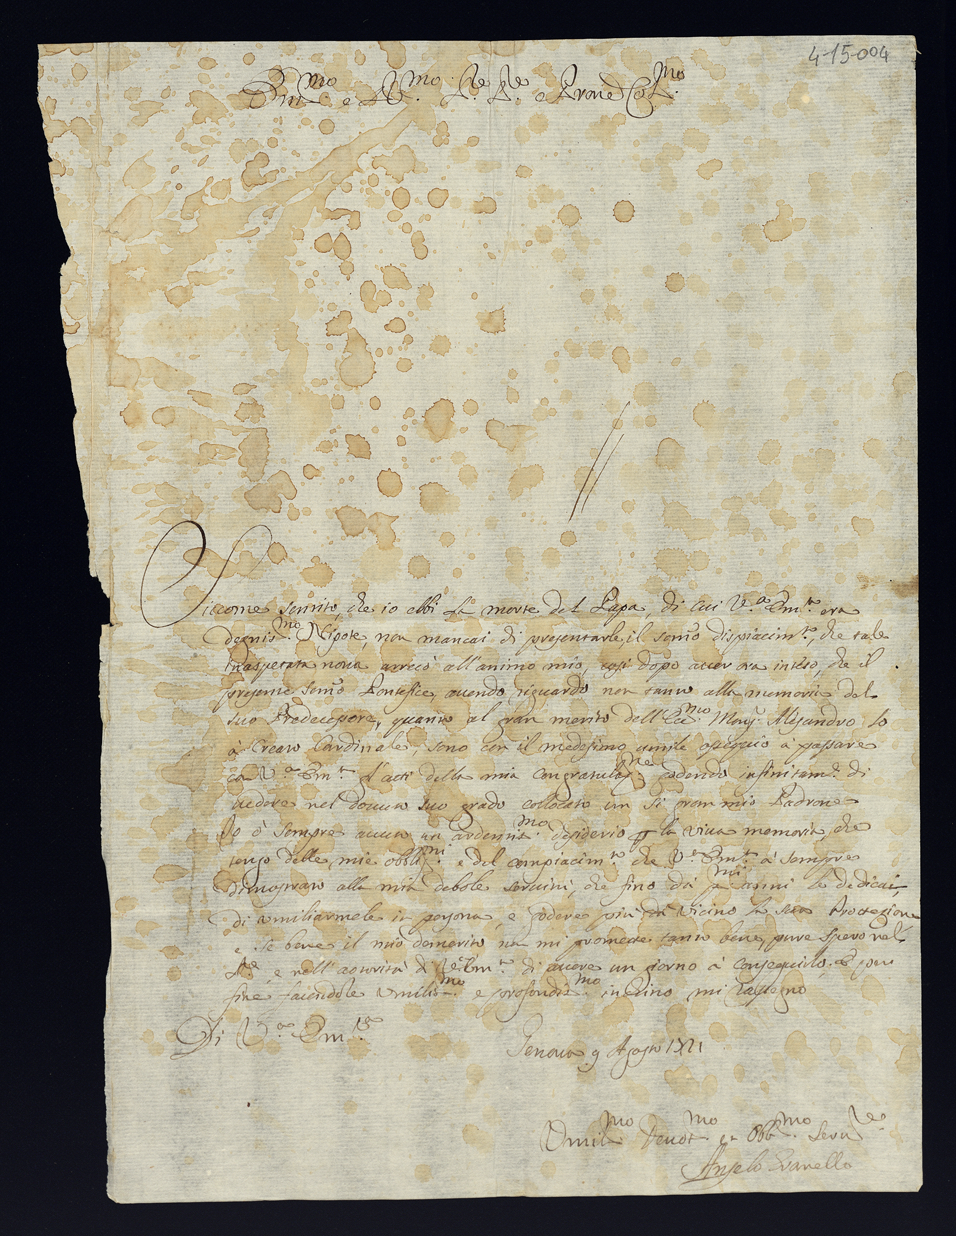 4-15-004
Em.mo e R.mo Sig.re Sig.re e Prone Col.mo
Siccome sentito, che io ebbi la morte del Papa, di cui V.a Em.za era
degnis.mo Nipote, non mancai di presentarle il sommo dispiacim.to, che tale
inaspettata nova arrecò all'animo mio, così dopo aver ora inteso, che il
presente sommo Pontefice, avendo riguardo non tanto alla memoria del
suo Predecessore, quanto al gran merito dell'Ecc.mo Mons.r Alesandro lo
à Creato Cardinale, sono con il medesimo umile ossequio à passare
con V.a Em.za l'atti della mia congratulaz.ne godendo infinitam.te di
vedere nel dovuto suo grado collocato un sì gran mio Padrone
Io ò sempre avuto un ardentis.mo desiderio per la viva memoria, che
tengo delle mie obblig.ni e del compiacim.to che V.a Em.za à sempre
dimostrato alla mia debole servitù, che fino dà p.mi anni le dedicai
di umiliarmele in persona, e godere più da vicino la sua Protezione
e se bene il mio demerito non mi promette tanto bene, pure spero nel
e nell'autorità di V.a Em.za di avere un giorno à conseguirlo. E per
fine facendole umilis.mo e profondis.mo inchino mi rassegno
Di V.a Em.za
Genova 9 Agosto 1721
Umil.mo Devot.mo et Obb.mo Serv.re
Angelo